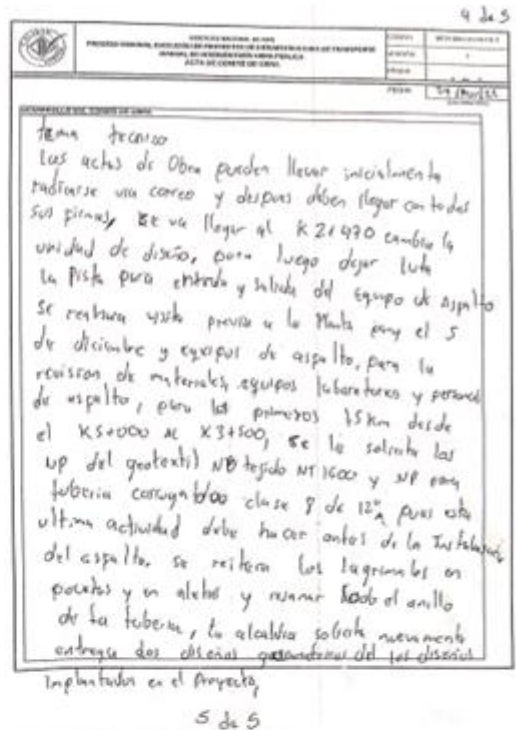 4 de 5
INSTITUTO NACIONAL DE VIAS
ACTA DE COMITÉ DE OBRA
DESARROLLO DEL COMITÉ DE OBRA
tema tecnico
Las actas de Obra pueden llevar inicialmente
radicarse via correo y despues deben llegar con todas
sus firmas, se va llegar al K2+470 cambia la
unidad de diseño, para luego dejar
la Pista para entrada y salida del Equipo de Aspalto
Se realizara visita previa a la Planta para el 5
de diciembre y equipos de aspalto, para la
revision de materiales, equipos laboratorios y personal
de aspalto, para los primeros 1.5 km desde
el K5+000 al K3+500, se le solicita los
NP del geotextil tejido NT 1600 y NP para
tuberia corrugab clase 8 de 12" pues esta
ultima actividad debe hacer antes de la Instalación
del aspalto. se reitera los lagrimales en
pocetas y en aletas y resanar todo el anillo
de la tuberia, la alcaldia solicita nuevamente
entregue dos diseños del los diseños
Implantados en el Proyecto,
5 de 5